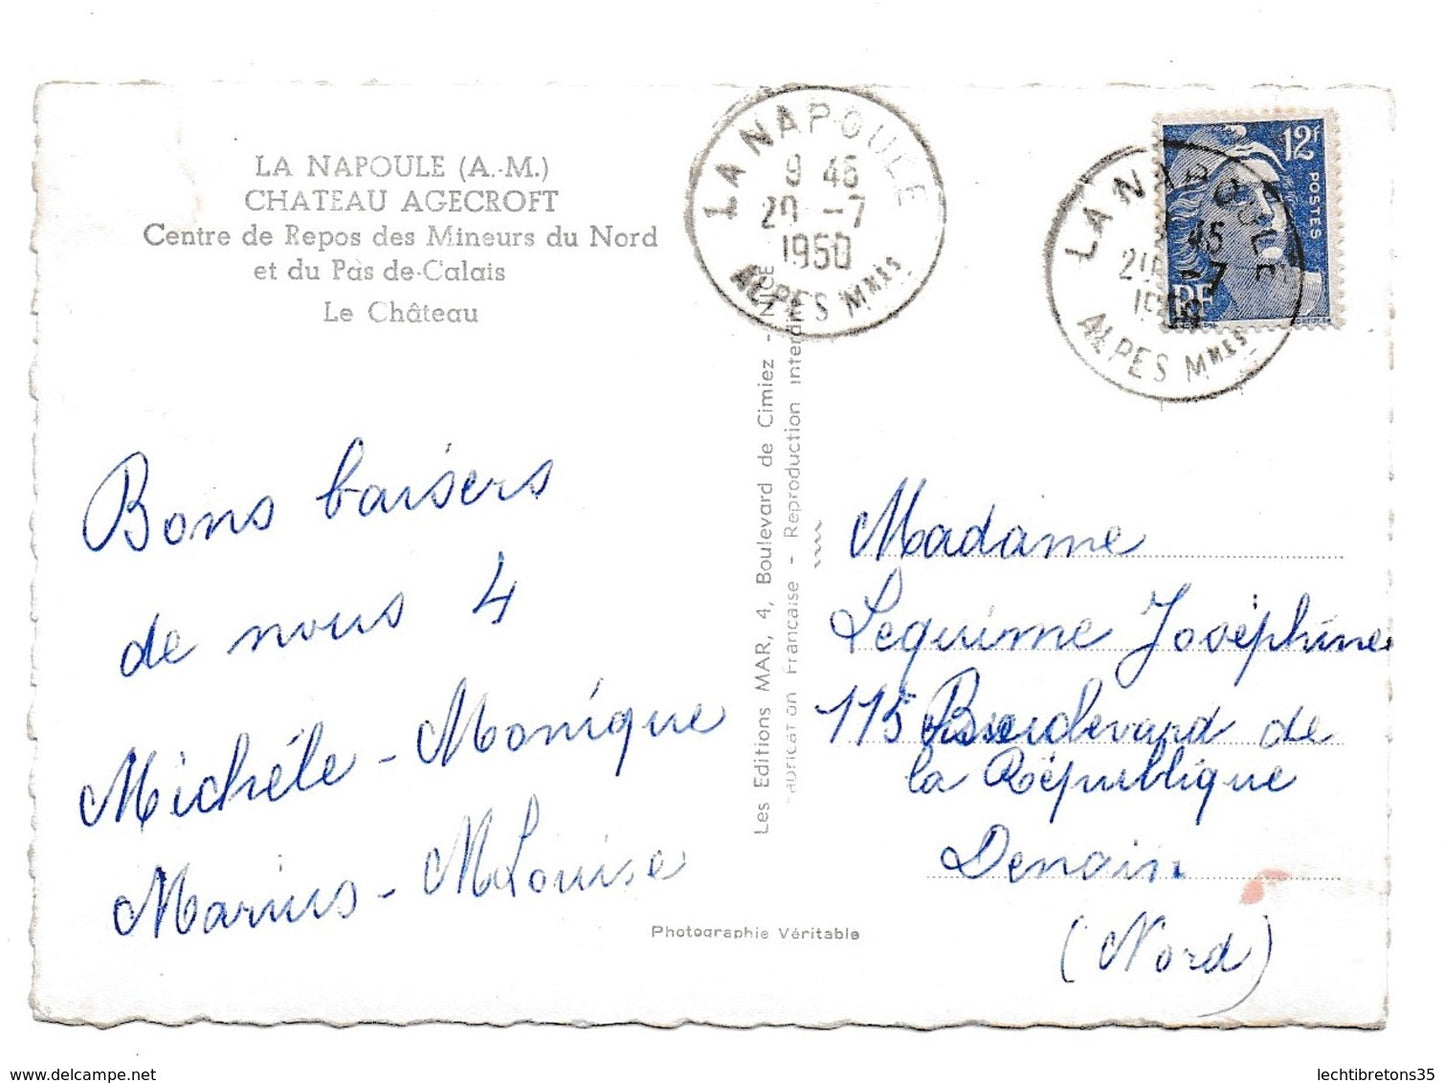 LA NAPOULE (A.-M.)
CHATEAU AGECROFT
Centre de Repos des Mineurs du Nord
et du Pas de-Calais
Le Château
LA NAPOULE
9 45
20 -7
1950
ALPES MMES
LA NAPOULE
45
-7
ALPES MMES
12F
POSTES
RF
Bons baisers
de nous 4
Michéle - Monique
Marius - MLouise
Les Editions MAR, 4, Boulevard de Cimiez - NICE
Fabrication Française - Reproduction interdite
Madame
Lequime Joséphine
115 Boulevard de
la République
Denain
(Nord)
Photographie Véritable
delcampe.net
lechtibretons35